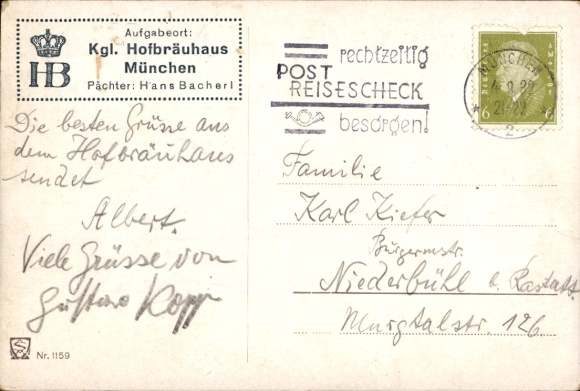 Aufgabeort:
Kgl. Hofbräuhaus
München
Pächter: Hans Bacherl
HB
rechtzeitig
POST
REISESCHECK
besorgen!
MÜNCHEN
2
6 6
Die besten Grüsse aus
dem Hofbräuhaus
sendet
Albert.
Viele Grüsse von
Gustav Kopp
Familie
Karl Kiefer
Bürgermstr.
Niederbühl b. Rastatt.
Murgtalstr. 126.
Nr. 1159